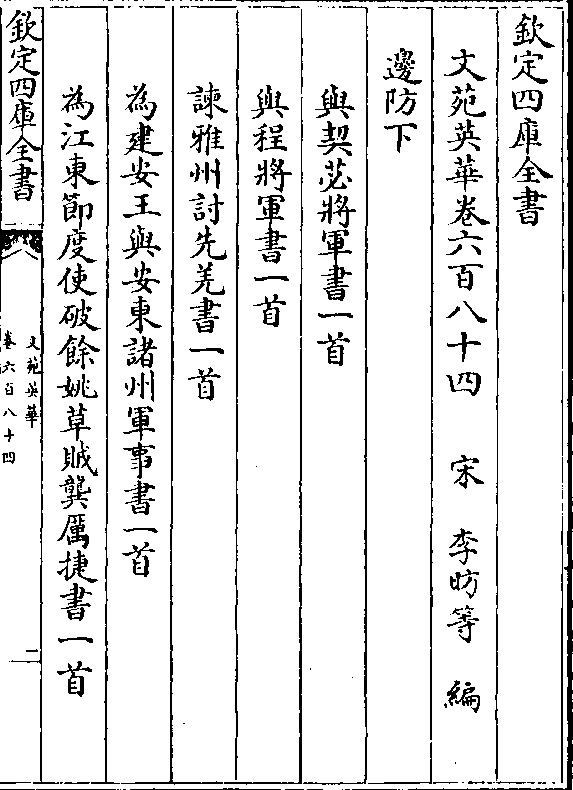 欽定四庫全書
文苑英華卷六百八十四 宋 李昉等 編
邊防下
與契苾將軍書一首
與程將軍書一首
諫雅州討先羌書一首
為建安王與安東諸州軍事書一首
為江東節度使破餘姚草賊龔厲捷書一首
欽定四庫全書
文苑英華
卷六百八十四
二